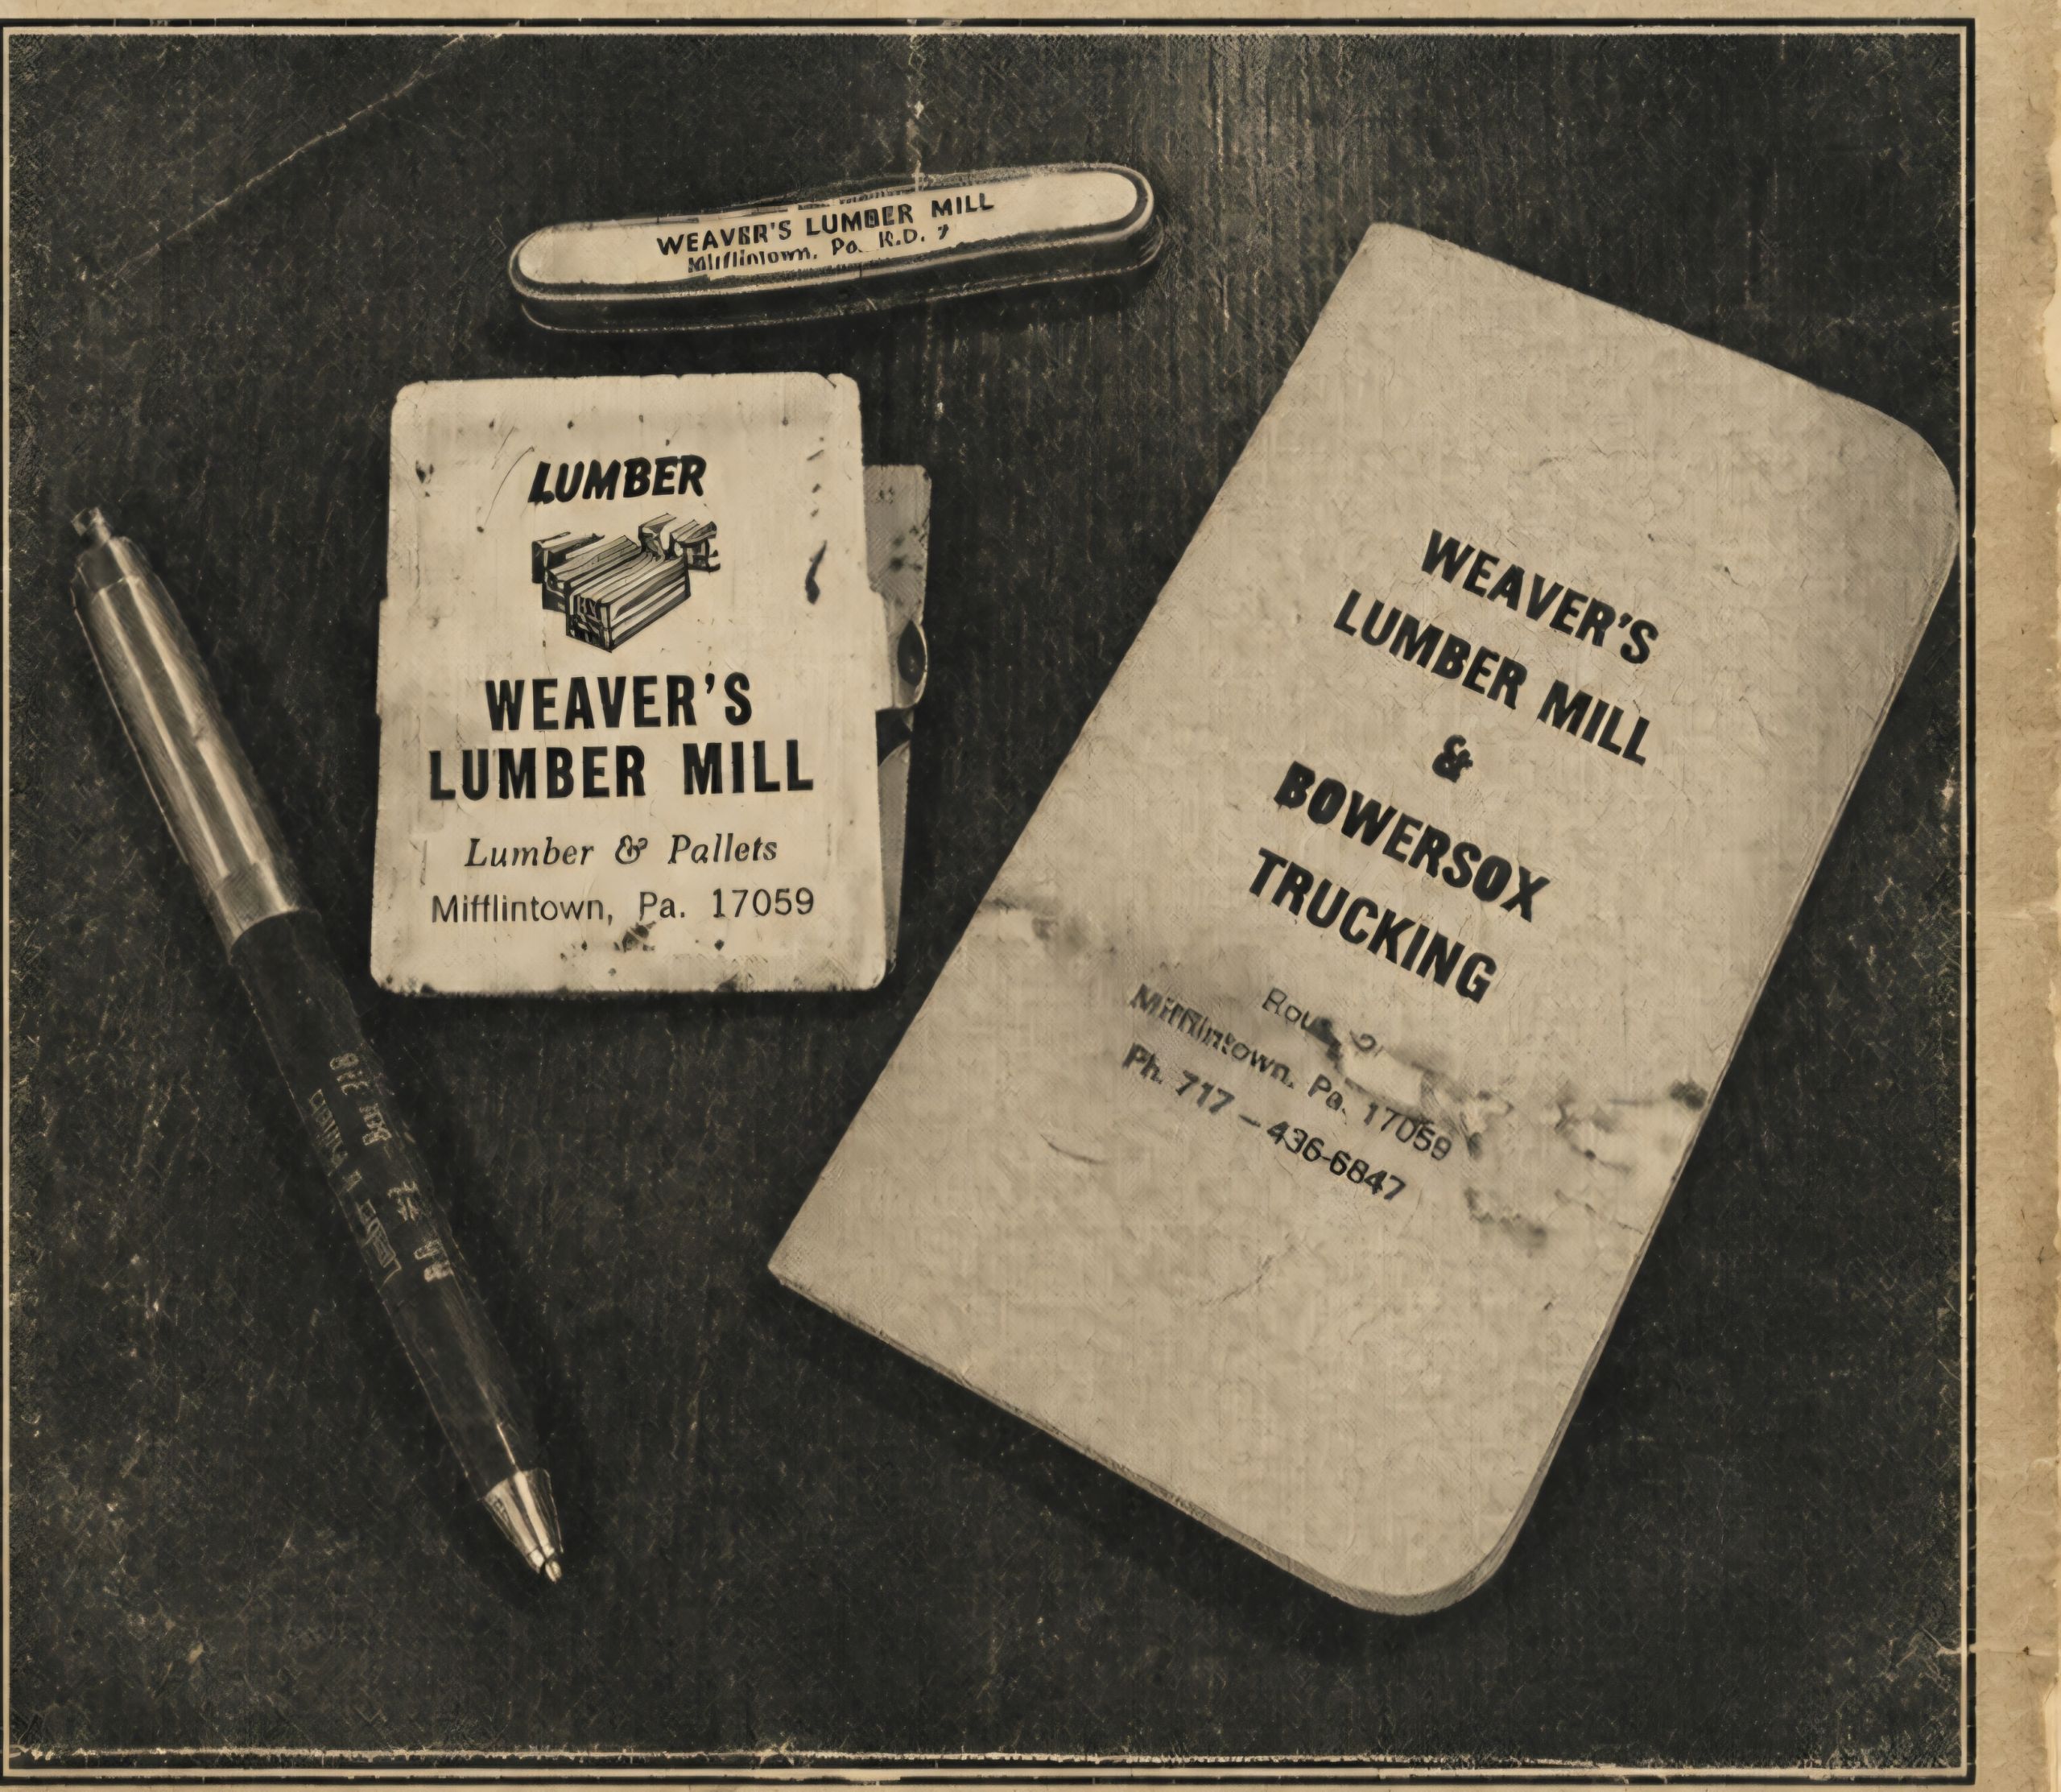 WEAVER'S LUMBER MILL
Mifflintown, Pa. R.D.
LUMBER
WEAVER'S
LUMBER MILL
Lumber & Pallets
Mifflintown, Pa. 17059
WEAVER'S
LUMBER MILL
&
BOWERSOX
TRUCKING
Mifflintown, Pa. 17059
Ph. 717 – 436-6847